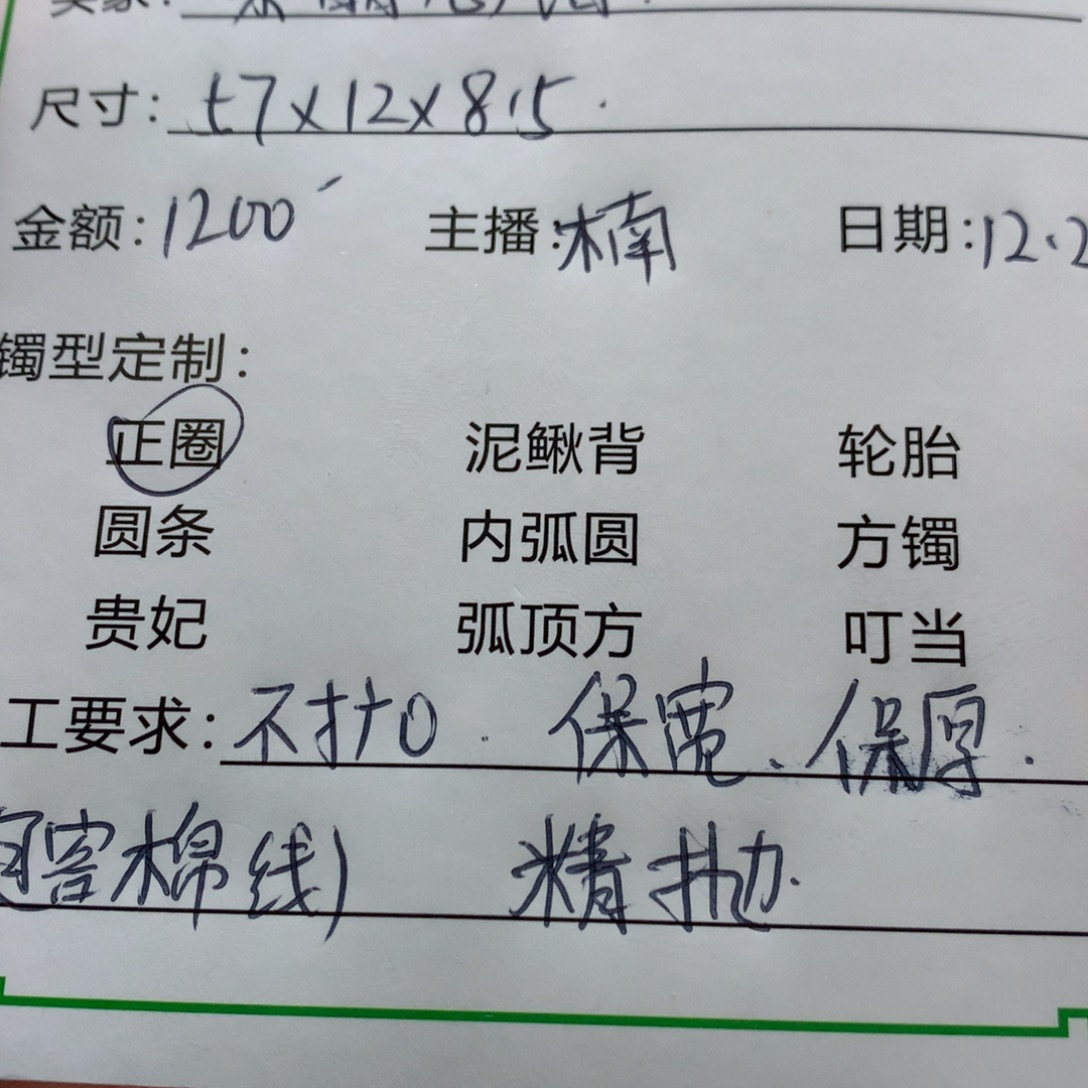 尺寸: 57x12x8.5.
金额: 1200 主播: 楠 日期: 12.2
镯型定制:
正圈 泥鳅背 轮胎
圆条 内弧圆 方镯
贵妃 弧顶方 叮当
工要求: 不扩口. 保宽、保厚.
客棉线) 精抛.